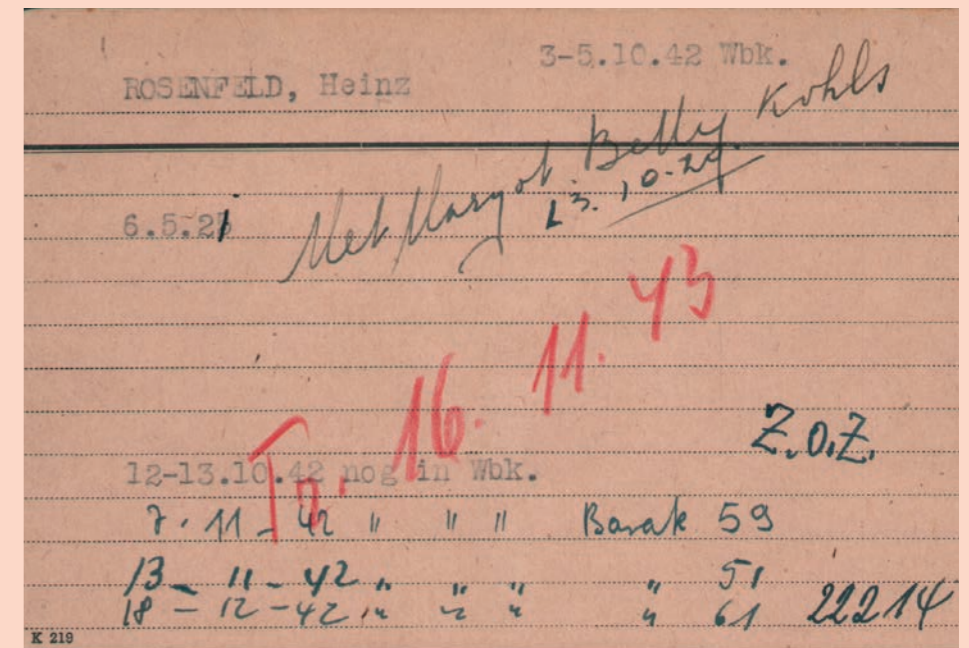 3-5.10.42 Wbk.
ROSENFELD, Heinz
Met Margot Betty Kohls
6.5.21
13.10.29
T. 16. 11. 43
Z.O.Z.
12-13.10.42 nog in Wbk.
7. 11 - 42 " " " Barak 59
13 - 11 - 42 " " " " 51
18 - 12 - 42 " " " " 61 22214
K 219